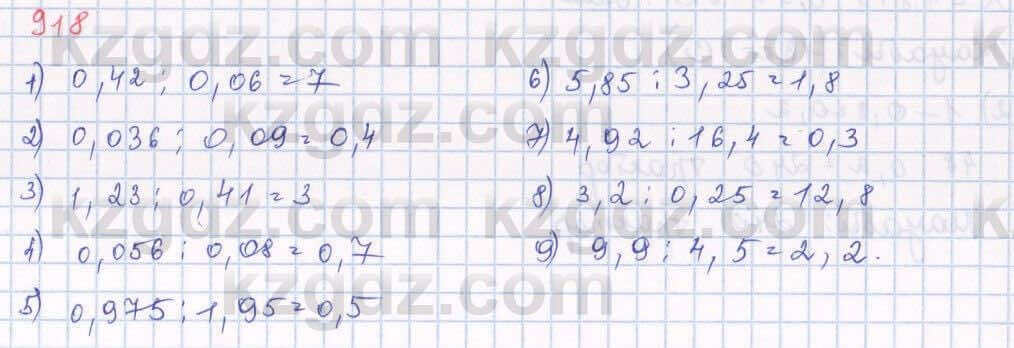 918
1) 0,42 : 0,06 = 7
2) 0,036 : 0,09 = 0,4
3) 1,23 : 0,41 = 3
4) 0,056 : 0,08 = 0,7
5) 0,975 : 1,95 = 0,5
6) 5,85 : 3,25 = 1,8
7) 4,92 : 16,4 = 0,3
8) 3,2 : 0,25 = 12,8
9) 9,9 : 4,5 = 2,2.
kzgdz.com